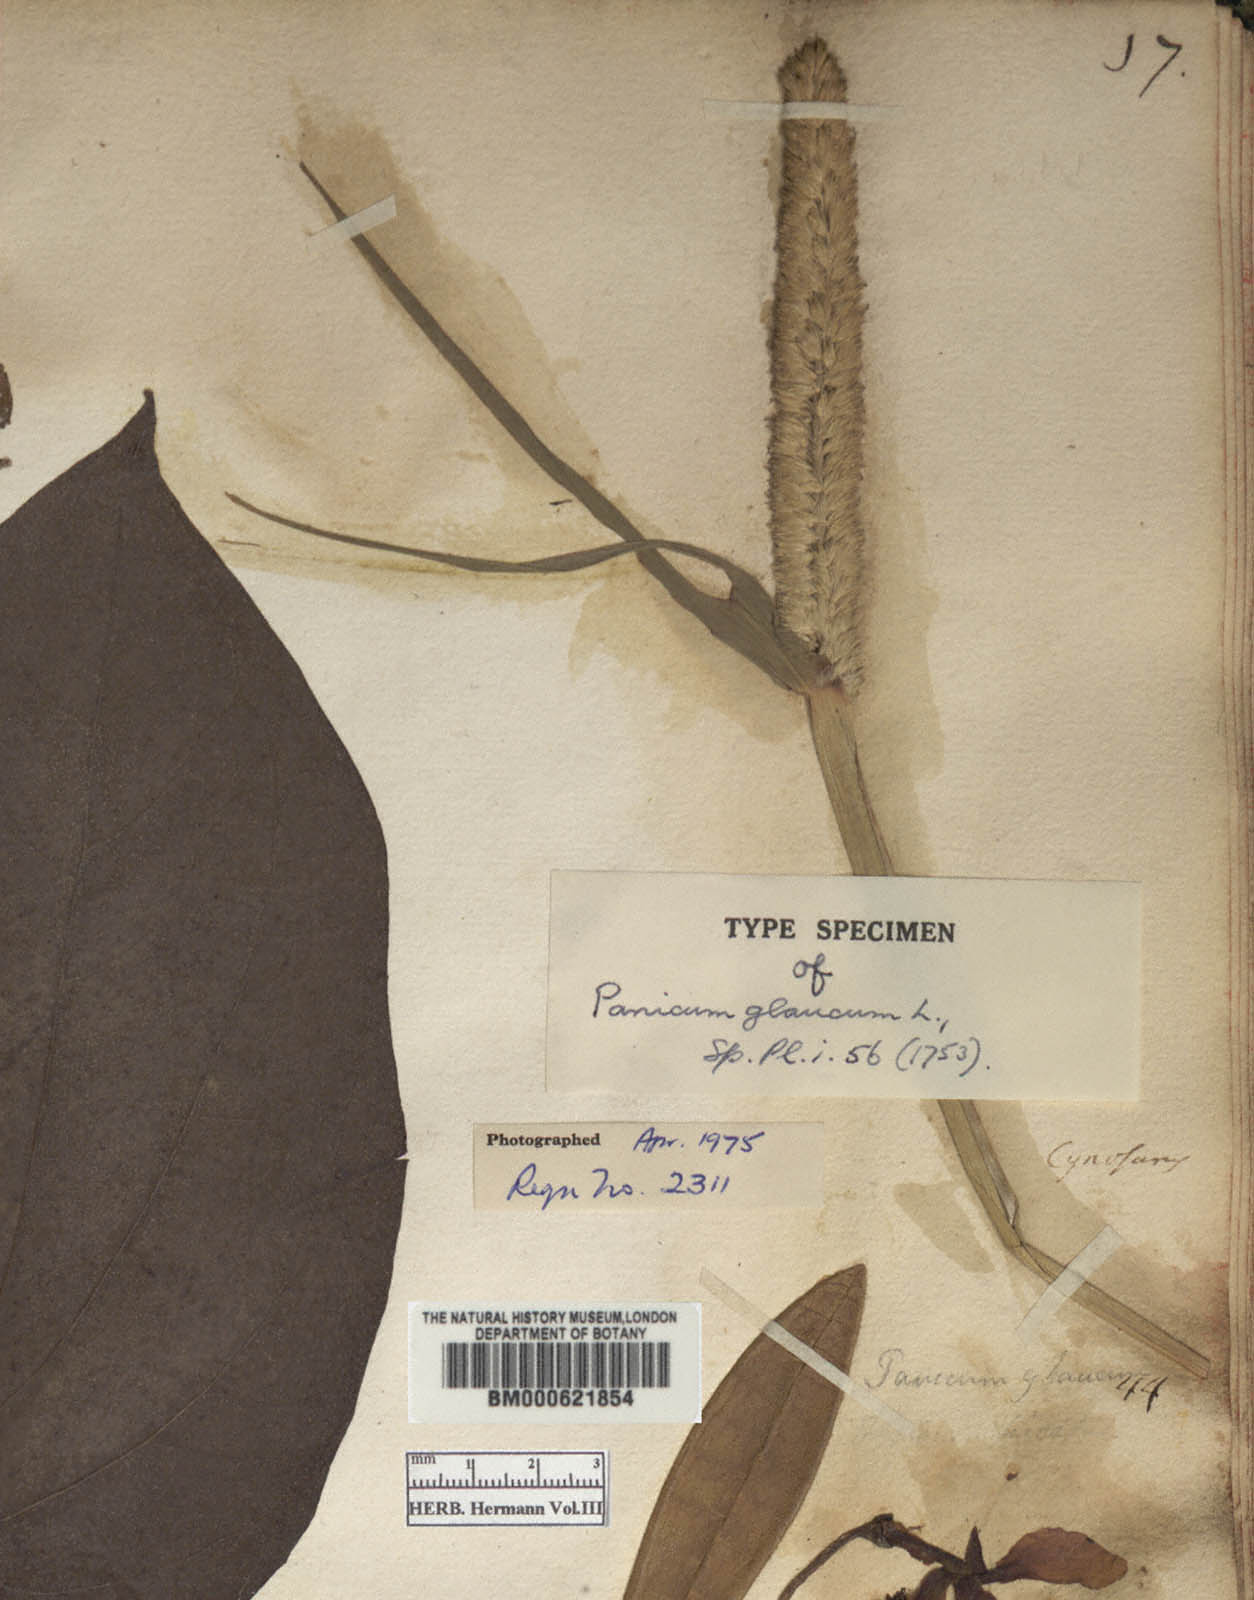 17.
TYPE SPECIMEN
of
Panicum glaucum L.,
Sp. Pl. i. 56 (1753).
Photographed Apr. 1975
Regn No. 2311
THE NATURAL HISTORY MUSEUM, LONDON
DEPARTMENT OF BOTANY
BM000621854
Panicum glaucum 44
mm 1 2 3
HERB. Hermann Vol.III